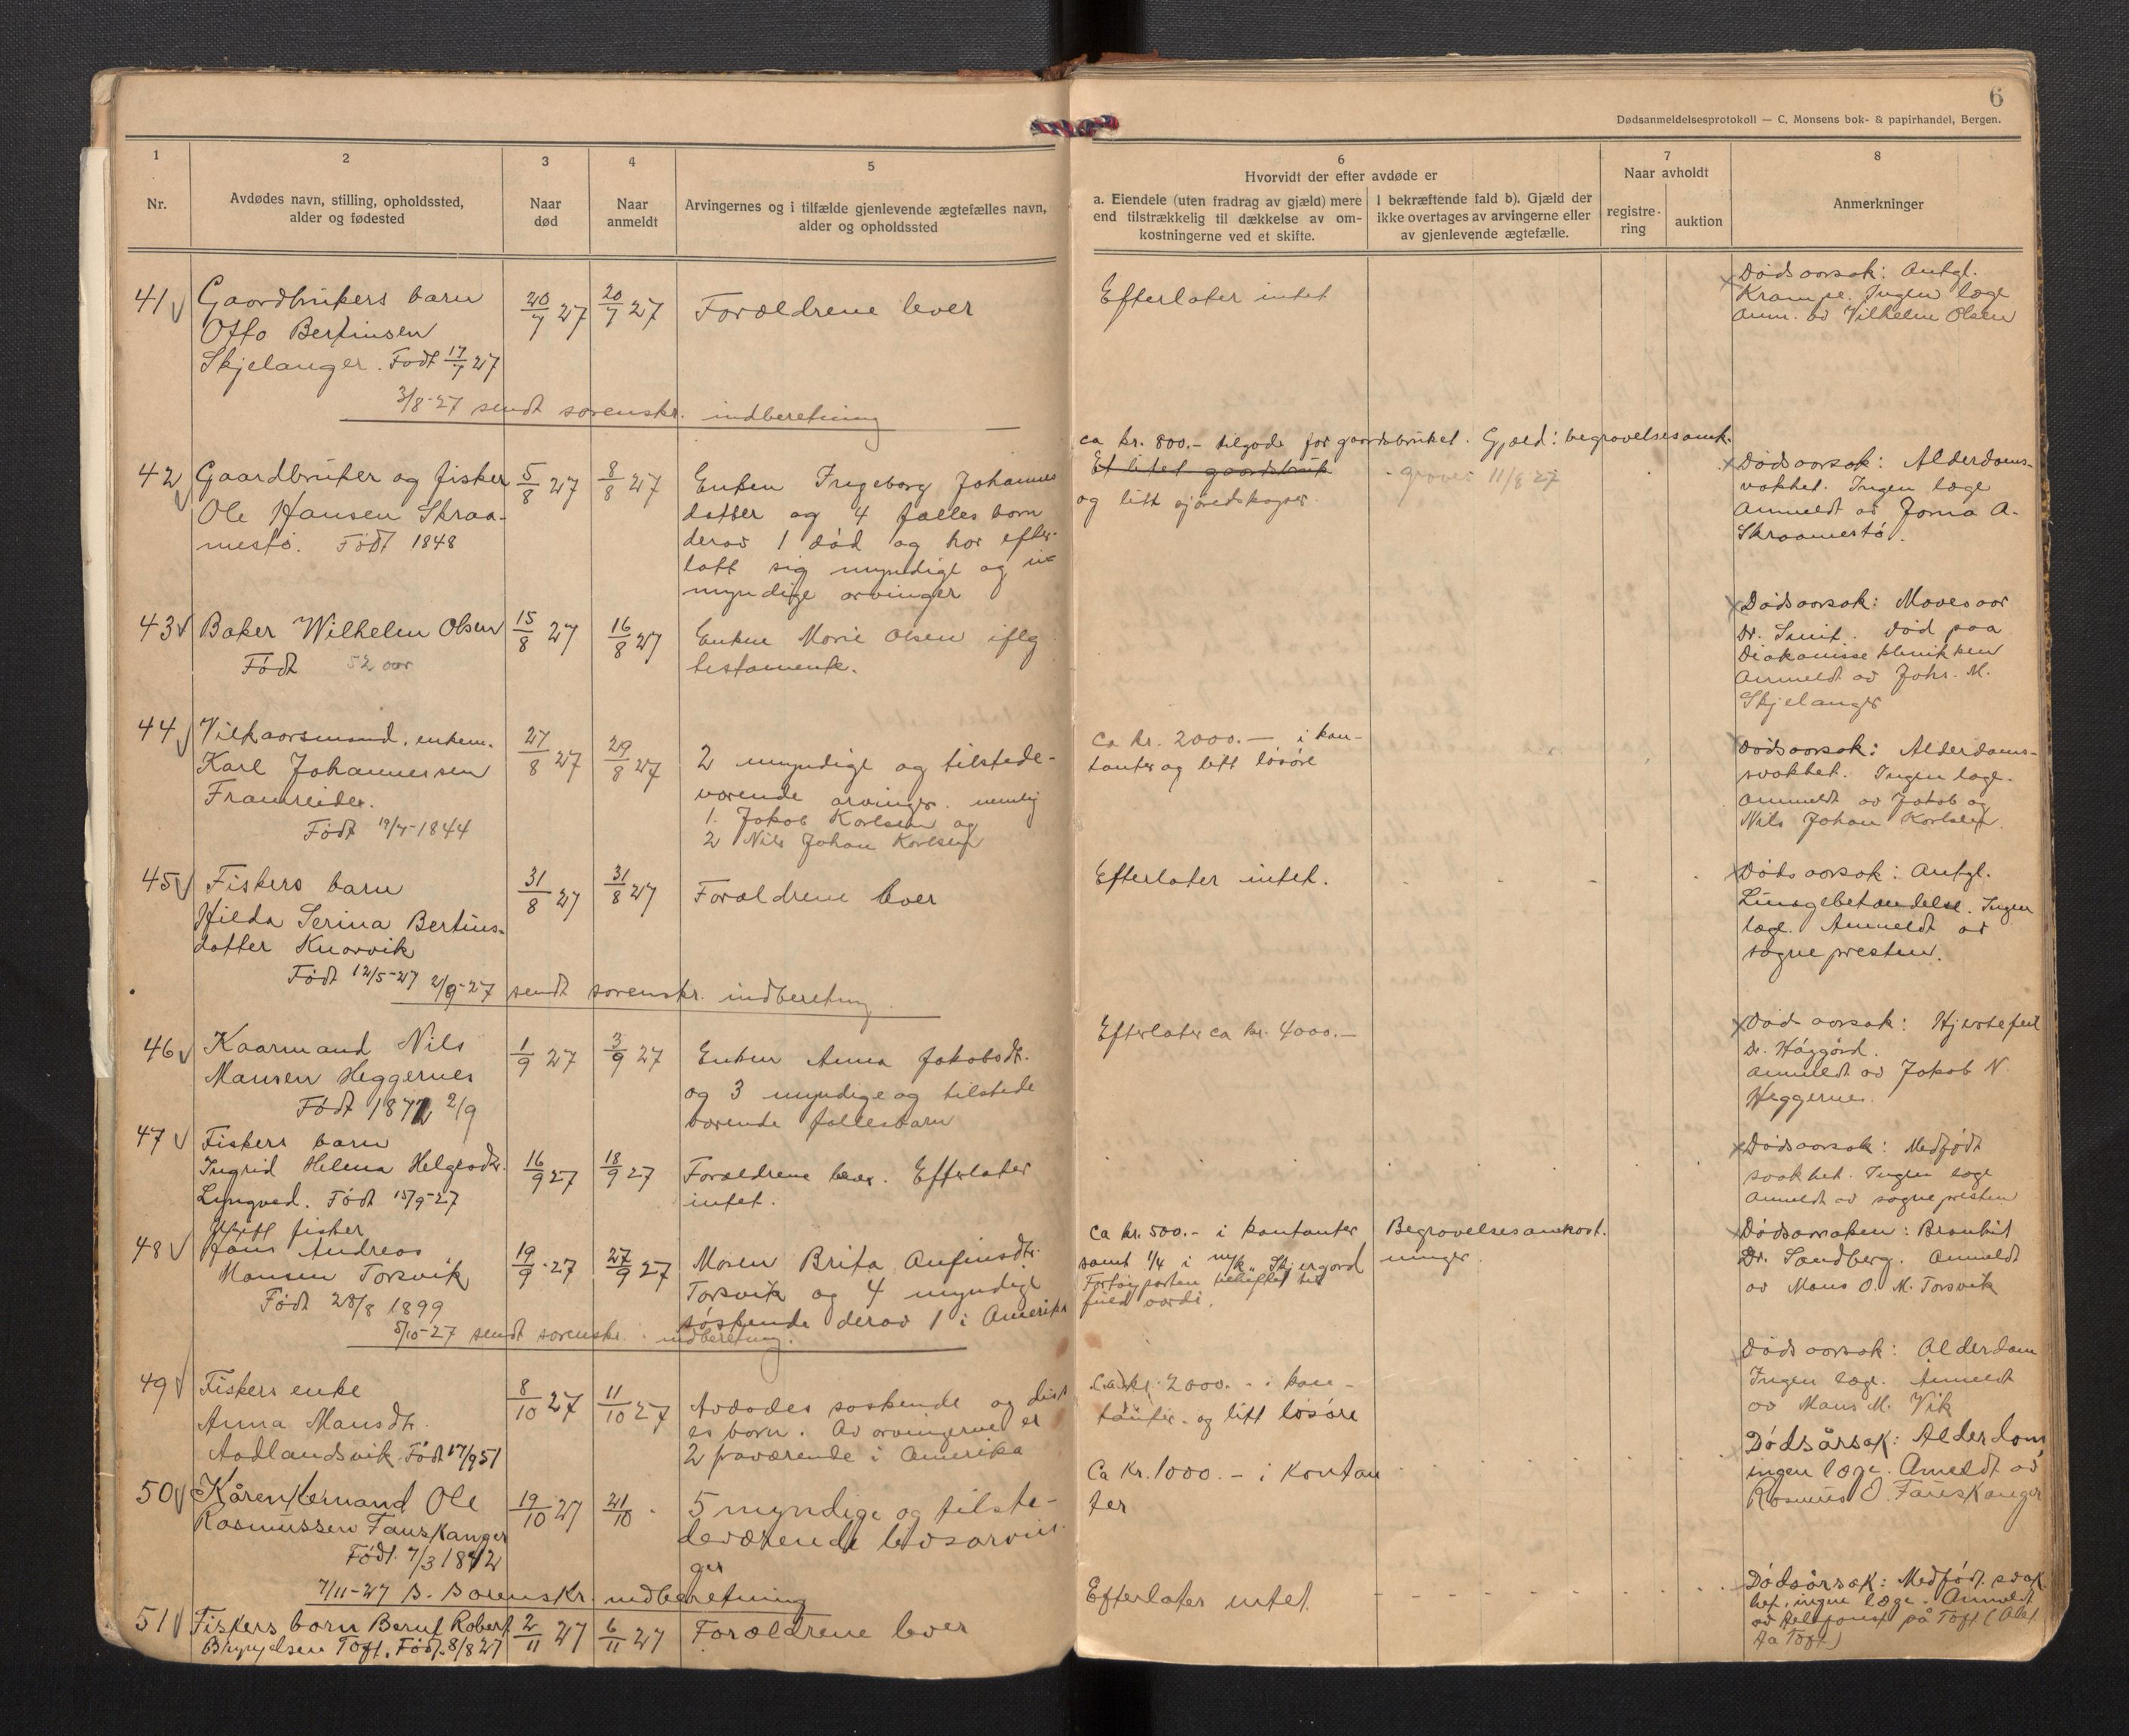 6
Dødsanmeldelsesprotokoll — C. Monsens bok- & papirhandel, Bergen.
1
Nr.
2
Avdødes navn, stilling, opholdssted,
alder og fødested
3
Naar
død
4
Naar
anmeldt
5
Arvingernes og i tilfælde gjenlevende ægtefælles navn,
alder og opholdssted
6
Hvorvidt der efter avdøde er
a. Eiendele (uten fradrag av gjæld) mere
end tilstrækkelig til dækkelse av om-
kostningerne ved et skifte.
I bekræftende fald b). Gjæld der
ikke overtages av arvingerne eller
av gjenlevende ægtefælle.
7
Naar avholdt
registre-
ring
auktion
8
Anmerkninger
41
Gaardbrukers barn
Otto Bertinsen
Skjelanger. Født 17/7 27
20/7 27
20/7 27
Forældrene lever
Efterlater intet
Dødsaarsak: Antgl.
Krampe. Ingen læge
Anm. av Vilhelm Olsen
3/8-27 sendt sorenskr. indberetning
42
Gaardbruker og fisker
Ole Hansen Skraa-
mestø. Født 1848
5/8 27
8/8 27
Enken Ingeborg Johannes
datter og 4 fælles barn
derav 1 død og har efter-
latt sig myndige og u-
myndige arvinger
ca kr. 800.- tilgode for gaardsbruket. Gjæld: begravelsesomk.
Et litet gaardsbruk
og litt sjøredskaper.
graves 11/8 27
Dødsaarsak: Alderdoms-
svakhet. Ingen læge
Anmeldt av A.
Skraamestø.
43
Baker Wilhelm Olsen
Født 52 aar
15/8 27
16/8 27
Enken Marie Olsen iflg
testamente.
Dødsaarsak: Mavesaar
Dr. Smit. Død paa
Diakonisse klinikken
Anmeldt av Johs. M.
Skjelanger
44
Vilkaarsmand, enkem.
Karl Johannessen
Framreide.
Født 1844
27/8 27
29/8 27
2 myndige og tilstede-
værende arvinger. nemlig
1. Jakob Karlsen og
2 Nils Johan Karlsen
Ca kr. 2000.- i kon-
tanter og litt løsøre
Dødsaarsak: Alderdoms-
svakhet. Ingen læge.
Anmeldt av Jakob og
Nils Johan Karlsen.
45
Fiskers barn
Hilda Serina Bertins-
datter Knarvik
Født 12/5-27
31/8 27
31/8 27
Forældrene lever
Efterlater intet.
Dødsaarsak: Antgl.
Lungebetændelse. Ingen
læge. Anmeldt av
sognepresten.
2/9-27 sendt sorenskr. indberetning
46
Kaarmand Nils
Mansen Heggernes
Født 1872 2/9
1/9 27
3/9 27
Enken Anna Jakobsdtr.
og 3 myndige og tilstede
værende fællesbarn
Efterlater ca kr. 4000.-
Dødsaarsak: Hjertefeil
Dr. Haggård.
Anmeldt av Jakob N.
Heggernes.
47
Fiskers barn
Ingrid Helena Helgesdtr.
Lyngved. Født 15/9-27
16/9 27
18/9 27
Forældrene lever. Efterlater
intet.
Dødsaarsak: Medfødt
svakhet. Ingen læge
Anmeldt av sognepresten
48
Ugift fisker
Hans Andreas
Mansen Torsvik
Født 28/8 1899
19/9 27
27/9 27
Moren Brita Anfinsdtr.
Torsvik og 4 myndige
søskende derav 1 i Amerika
Ca kr. 500.- i kontanter
samt 1/4 i m/k. Skjergard
Fartøiparten beheftet til
fuld værdi.
Begravelsesomkost.
ninger.
Dødsaarsaken: Bronkit
Dr. Sandberg. Anmeldt
av Mans O. M. Torsvik
5/10-27 sendt sorenskr. indberetning.
49
Fiskers enke
Anna Mansdtr.
Aadlandsvik. Født 17/9 51
8/10 27
11/10 27
Avdødes søskende og diss
es børn. Av arvingerne er
2 fraværende i Amerika
Ca kr. 2000.- i kon-
tanter og litt løsøre
Dødsaarsak: Alderdom
Ingen læge. Anmeldt
av Mans M. Vik
50
Kårenkemand Ole
Rasmussen Fanskanger
Født 7/3 1842
19/10 27
21/10
5 myndige og tilste-
deværende livsarvin-
ger
Ca Kr. 1000.- i Kontan
ter
Dødsårsak: Alderdom
ingen læge. Ameldt av
Rasmus O. Fanskanger
7/11-27 s. sorenskr. indberetning
51
Fiskers barn Bernt Robert
Brynjelsen Toft. Født 8/8 27
2/11 27
6/11 27
Forældrene lever
Efterlater intet.
Dødsårsak: Medfød. svak
het, ingen læge. Anmeldt
av telefonist på Toft (
Toft)